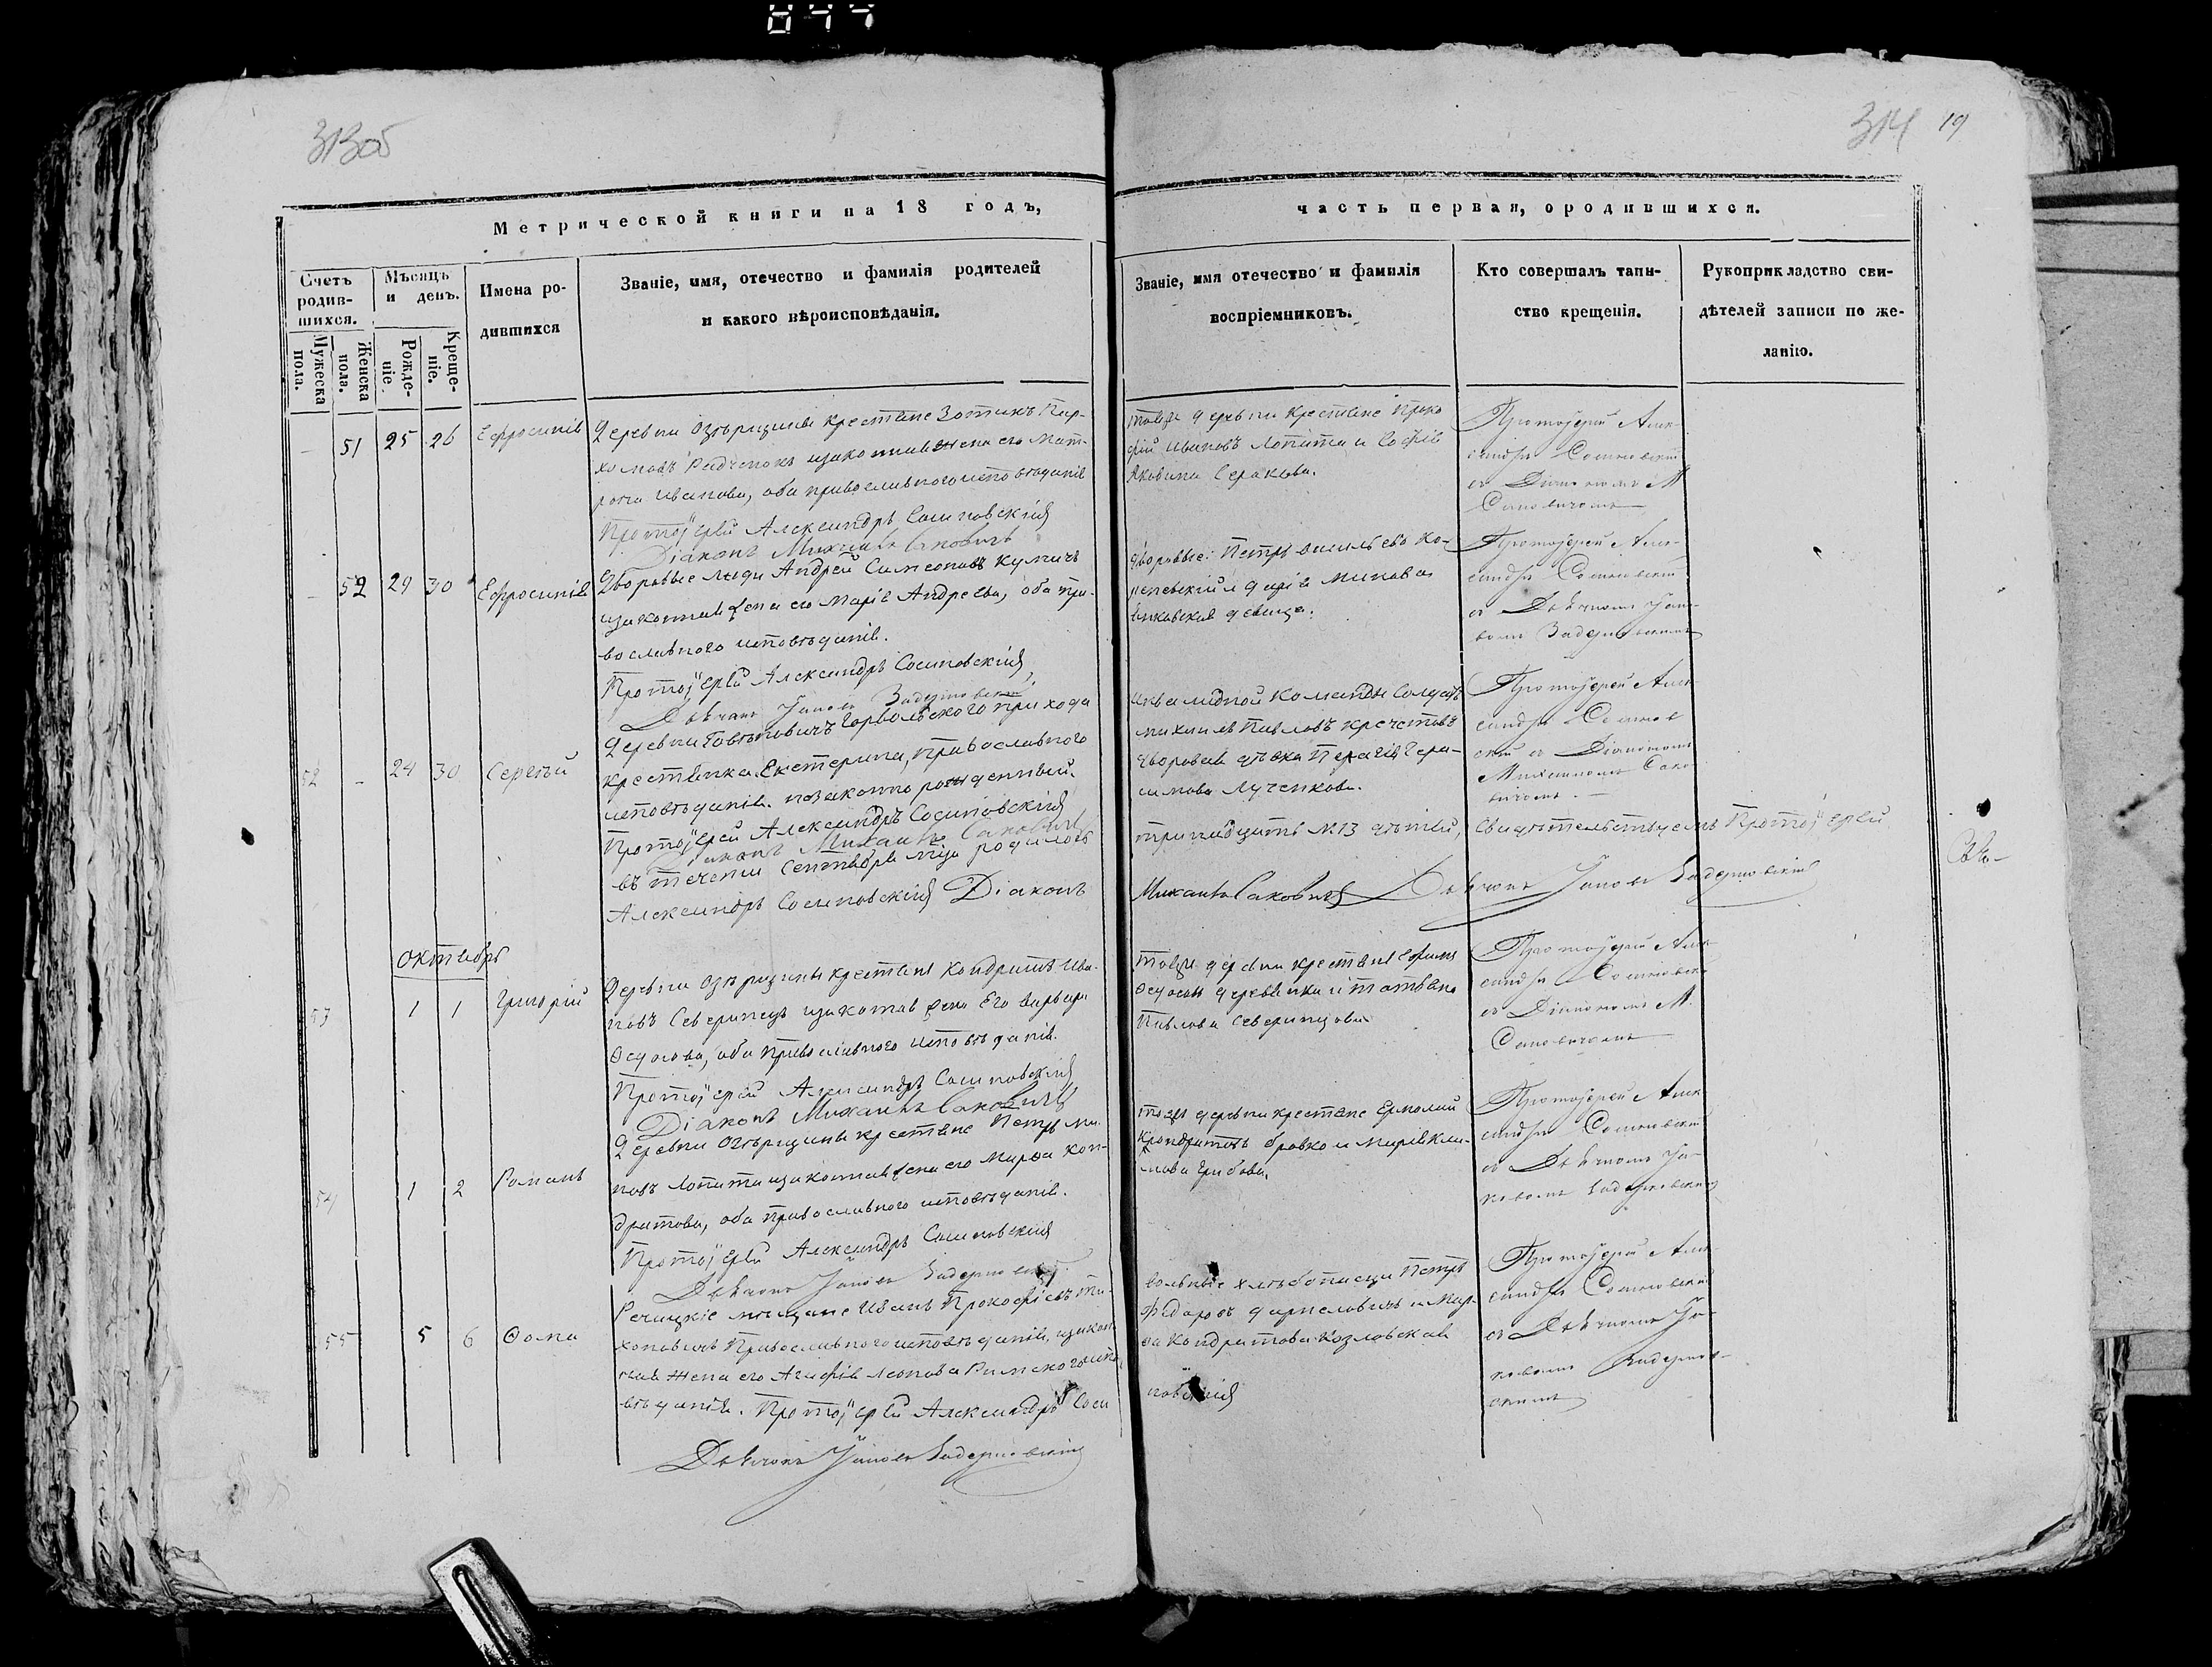 313об
314 19
Метрической книги на 18 годъ,
часть первая, ородившихся.
Счетъ родив-
шихся.
Мужеска пола.
Женска пола.
Мѣсяцъ и день.
Рожде-
ніе
Креще-
ніе.
Имена ро-
дившихся
Званіе, имя, отечество и фамилія родителей
и какого вѣроисповѣданія.
Званіе, имя отечество и фамилія
воспріемниковъ.
Кто совершалъ таин-
ство крещенія.
Рукоприкладство сви-
дѣтелей записи по же-
ланію.
51 25 26 Ефросинія
Деревни Озерщины крестяне Зотикъ Пар-
хомовъ Радченокъ изаконная жена его Мат-
рона Иванова, оба православного исповѣданія
Протоіерей Александръ Сосиновскій
Діаконъ Михаилъ Саковичъ
тойже деревни крестяне Проко
фій Ивановъ Лопата и Софія
Яковина Серакова.
Протоіерей Алек-
сандръ Сосиновскій
съ Діакономъ М
Саковичемъ
52 29 30 Ефросинія
Дворовые люди Андрей Симеоновъ Кумичъ
изаконная жена его Марія Андреева, оба пра-
вославного исповѣданія.
Протоіерей Александръ Сосиновскій
Дьячокъ Іаковъ Задерновскій
дворовые: Петръ васильевъ Ко-
девица.
Протоіерей Алек-
сандръ Сосиновскій
съ Дьячкомъ Іако-
вомъ Задерновскимъ
52 - 24 30 Сергѣй
Деревни Говѣновичъ Горвольского прихода
крестянка Екатерина, православного
исповѣданія. незаконно рожденный.
Протоіерей Александръ Сосиновскій
Діаконъ Михаилъ Саковичъ
Инвалидной Команды Солдатъ
михаилъ Павловъ Кречетовъ
дворовая дѣвка Пелагія Гера-
симова Лученкова.
Протоіерей Алек-
сандръ Сосинов
скій съ Діакономъ
Михаиломъ Сако
вичемъ.
въ теченіи Сентября мѣця родилось
тринадцать №13 дѣтей, Свидѣтельствуемъ Протоіерей
Александръ Сосиновскій Діаконъ
Михаилъ Саковичъ Дьячокъ Іаковъ Задерновскій
октябрь
53 1 1 Григорій
Деревни Озерщины крестяне Кондратъ Ива-
новъ Северинецъ изаконая жена Его варвара
Ѳедорова, оба православного исповѣданія.
Протоіерей Александръ Сосиновскій
Діаконъ Михаилъ Саковичъ
тойже деревни крестяне Ефимъ
и татьяна
Павлова Северинцова
Протоіерей Алек-
сандръ Сосиновскій
съ Діакономъ М.
Саковичемъ
54 1 2 Романъ
Деревни Озѣрщины крестяне Петръ Ми-
новъ Лопата изаконная жена его Марѳа Кон-
дратова, оба православного исповѣданія.
Протоіерей Александръ Сосиновскій
Дьячокъ Іаковъ Задерновскій
тойже деревни крестяне Ермолай
Кондратовъ бровко и Марія Кли-
мова Грибова.
Протоіерей Алек-
сандръ Сосиновскій
съ Дьячкомъ Іа-
ковомъ Задерновскимъ
55 5 6 Ѳома
Речицкіе мѣщане Иванъ Прокофіевъ Ти-
хоновичъ Православного исповѣданія, изакон-
ная жена его Агафія Леонова Римского испо
вѣданія. Протоіерей Александръ Соси
новскій
Дьячокъ Іаковъ Задерновскій
вольные хлѣбопашцы Петръ
Федоровъ и Мар-
ѳа Кондратова Козловская
Протоіерей Алек-
сандръ Сосиновскій
съ Дьячкомъ Іа-
ковомъ Задернов-
скимъ